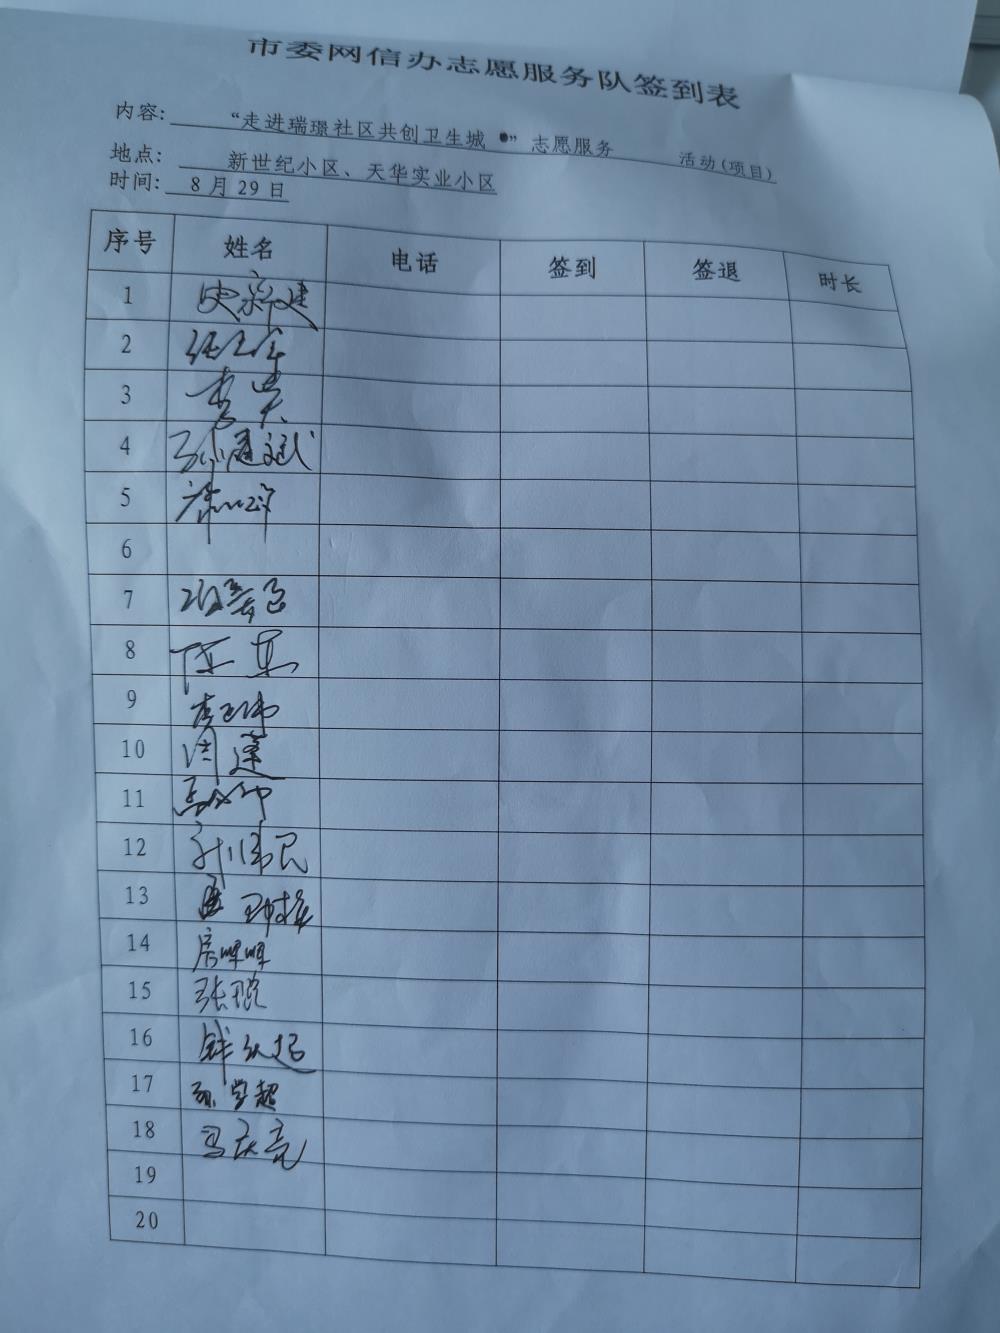 市委网信办志愿服务队签到表
内容: “走进瑞璟社区共创卫生城 ” 志愿服务 活动(项目)
地点: 新世纪小区、天华实业小区
时间: 8月29日
序号 姓名 电话 签到 签退 时长
1 史新建
2
3 李昊
4 孙建斌
5
6
7
8 陈其
9 李玉伟
10 闫莲
11
12 孙伟民
13
14 房晔晔
15 张璇
16
17 孙学超
18 马庆亮
19
20